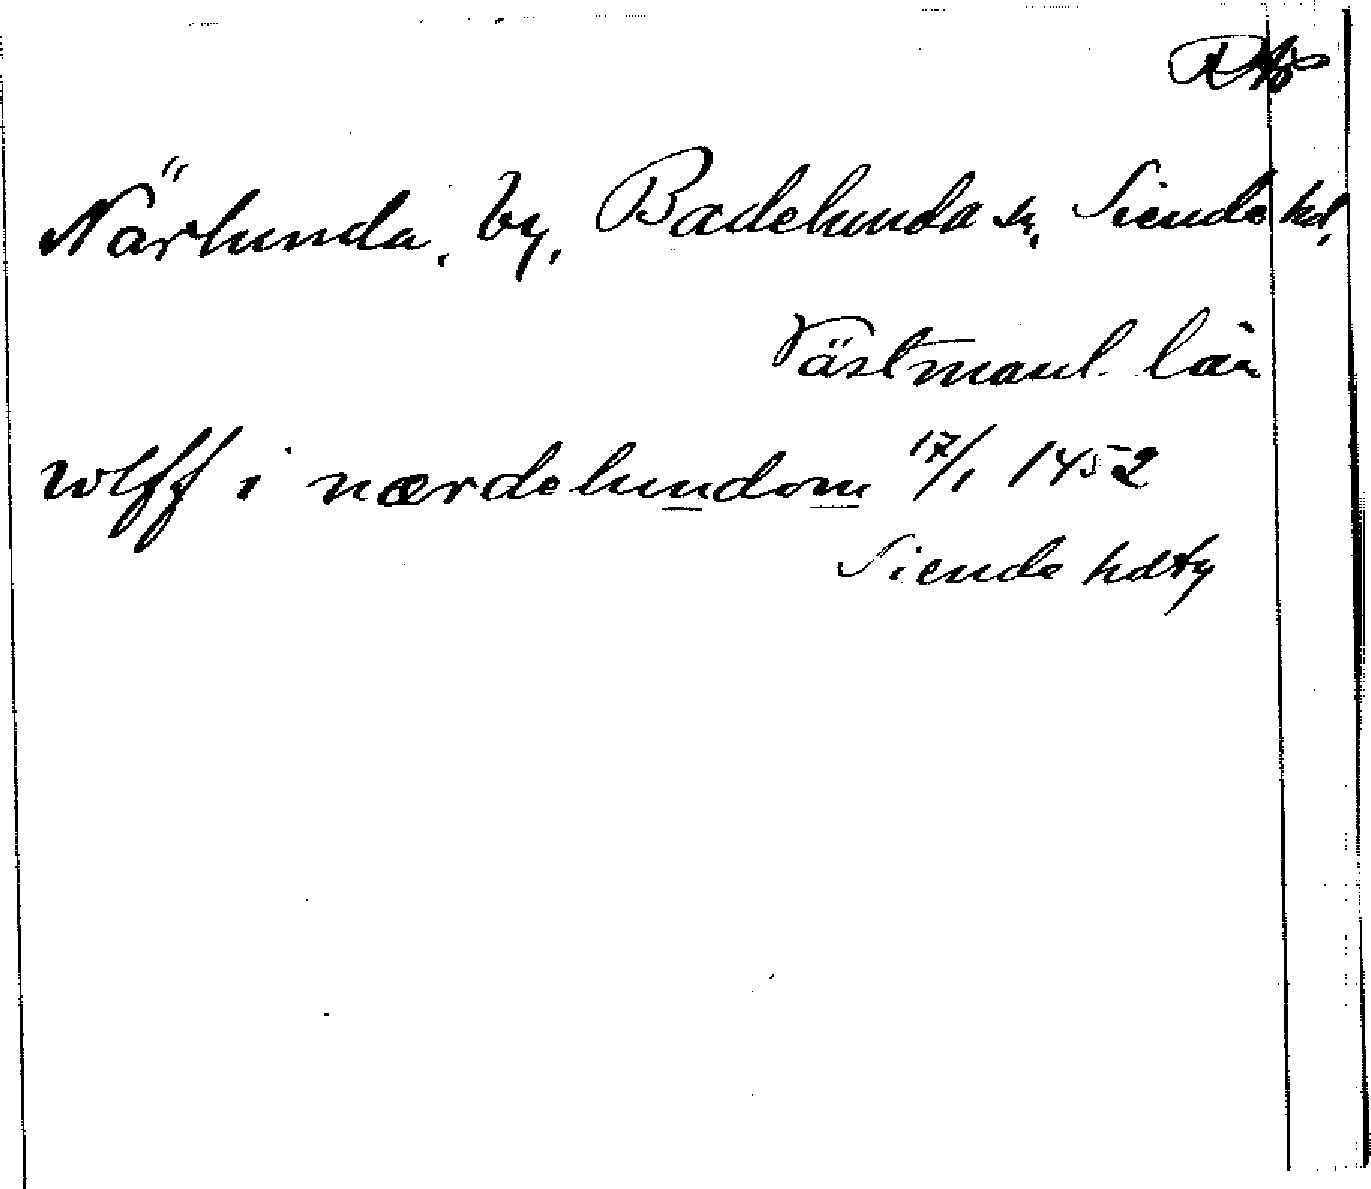 Närlunda, by, Badelunda sn, Siende hd,
Västmanl. län
wlff i nærdelundom 17/1 1452
Siende hdtg